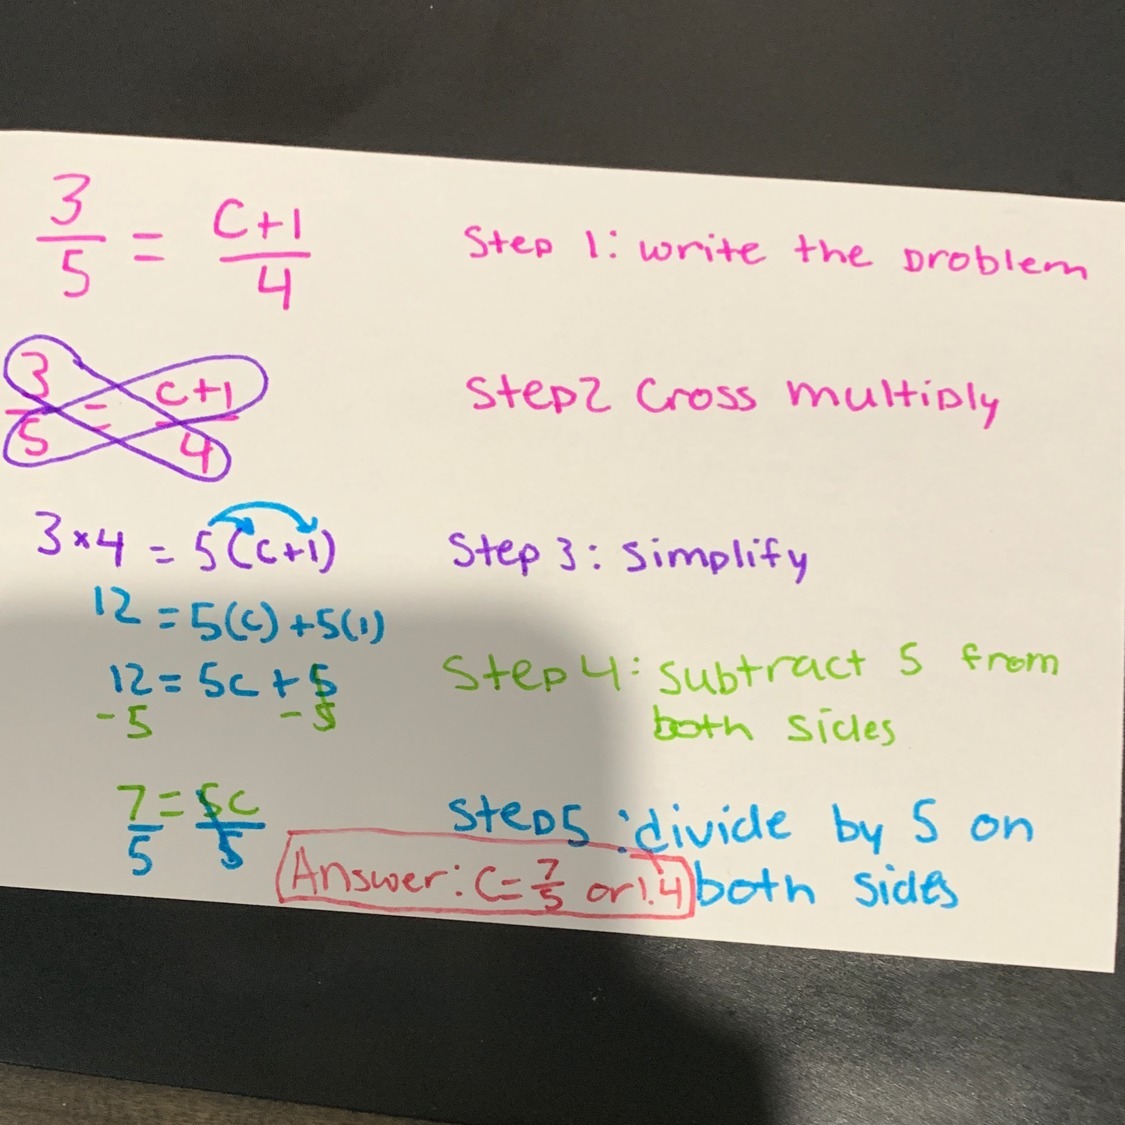 3/5 = C+1/4 Step 1: write the problem
3/5 = c+1/4 Step2 Cross multiply
3×4 = 5(c+1) Step 3: Simplify
12 = 5(c) + 5(1)
12 = 5c + 5 Step 4: subtract 5 from
-5 -5 both sides
7/5 = 5c/5 Step5: divide by 5 on
Answer: C = 7/5 or 1.4 both sides